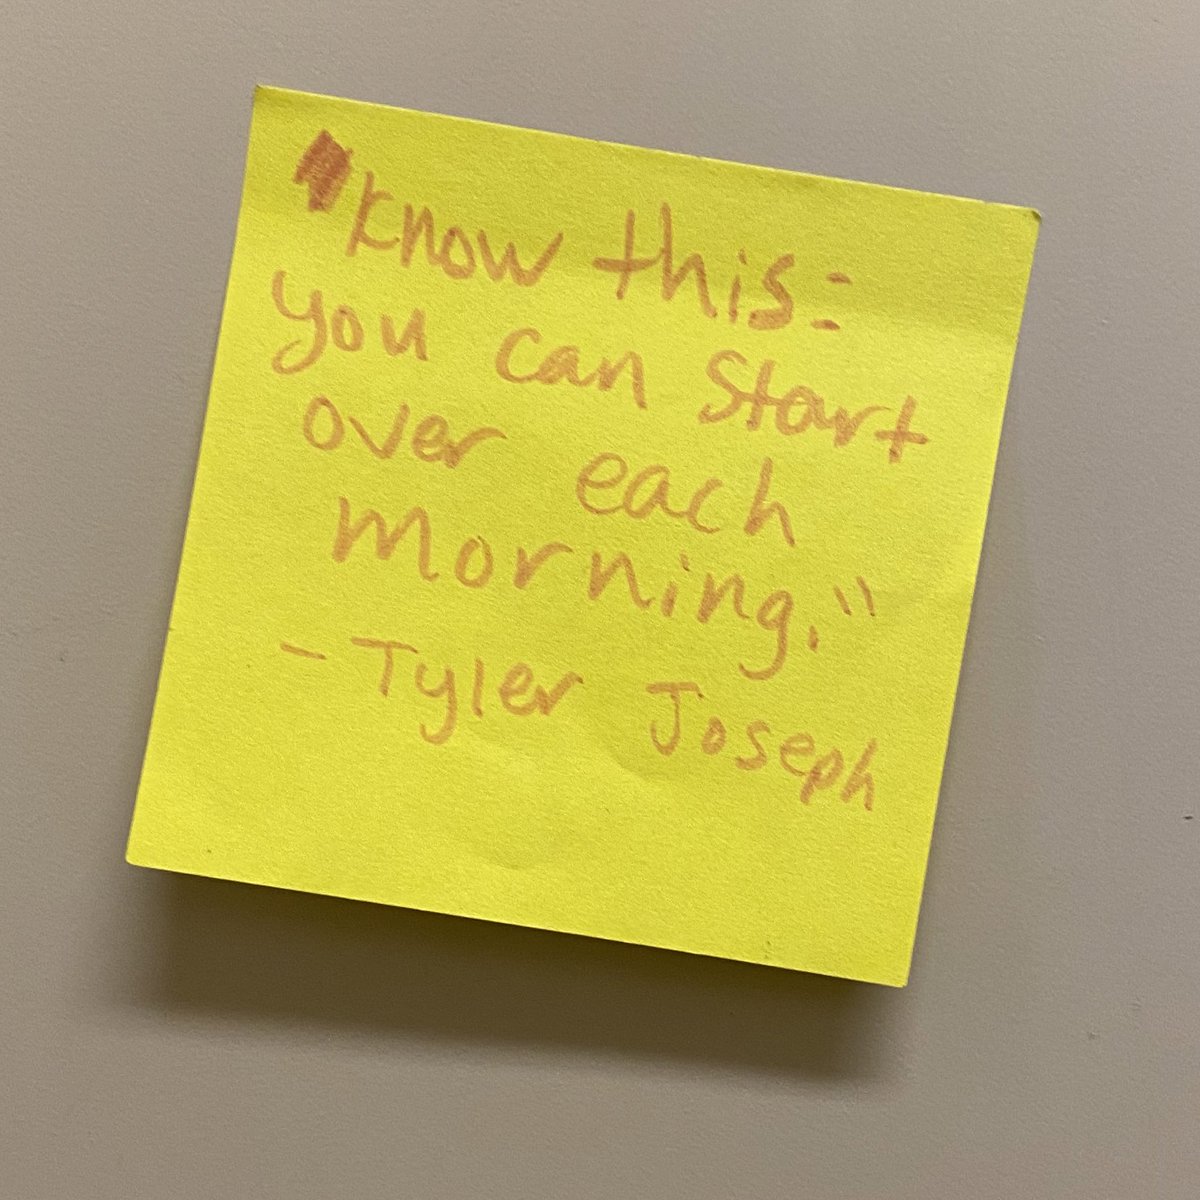 "know this:
you can start
over each
morning."
- Tyler Joseph